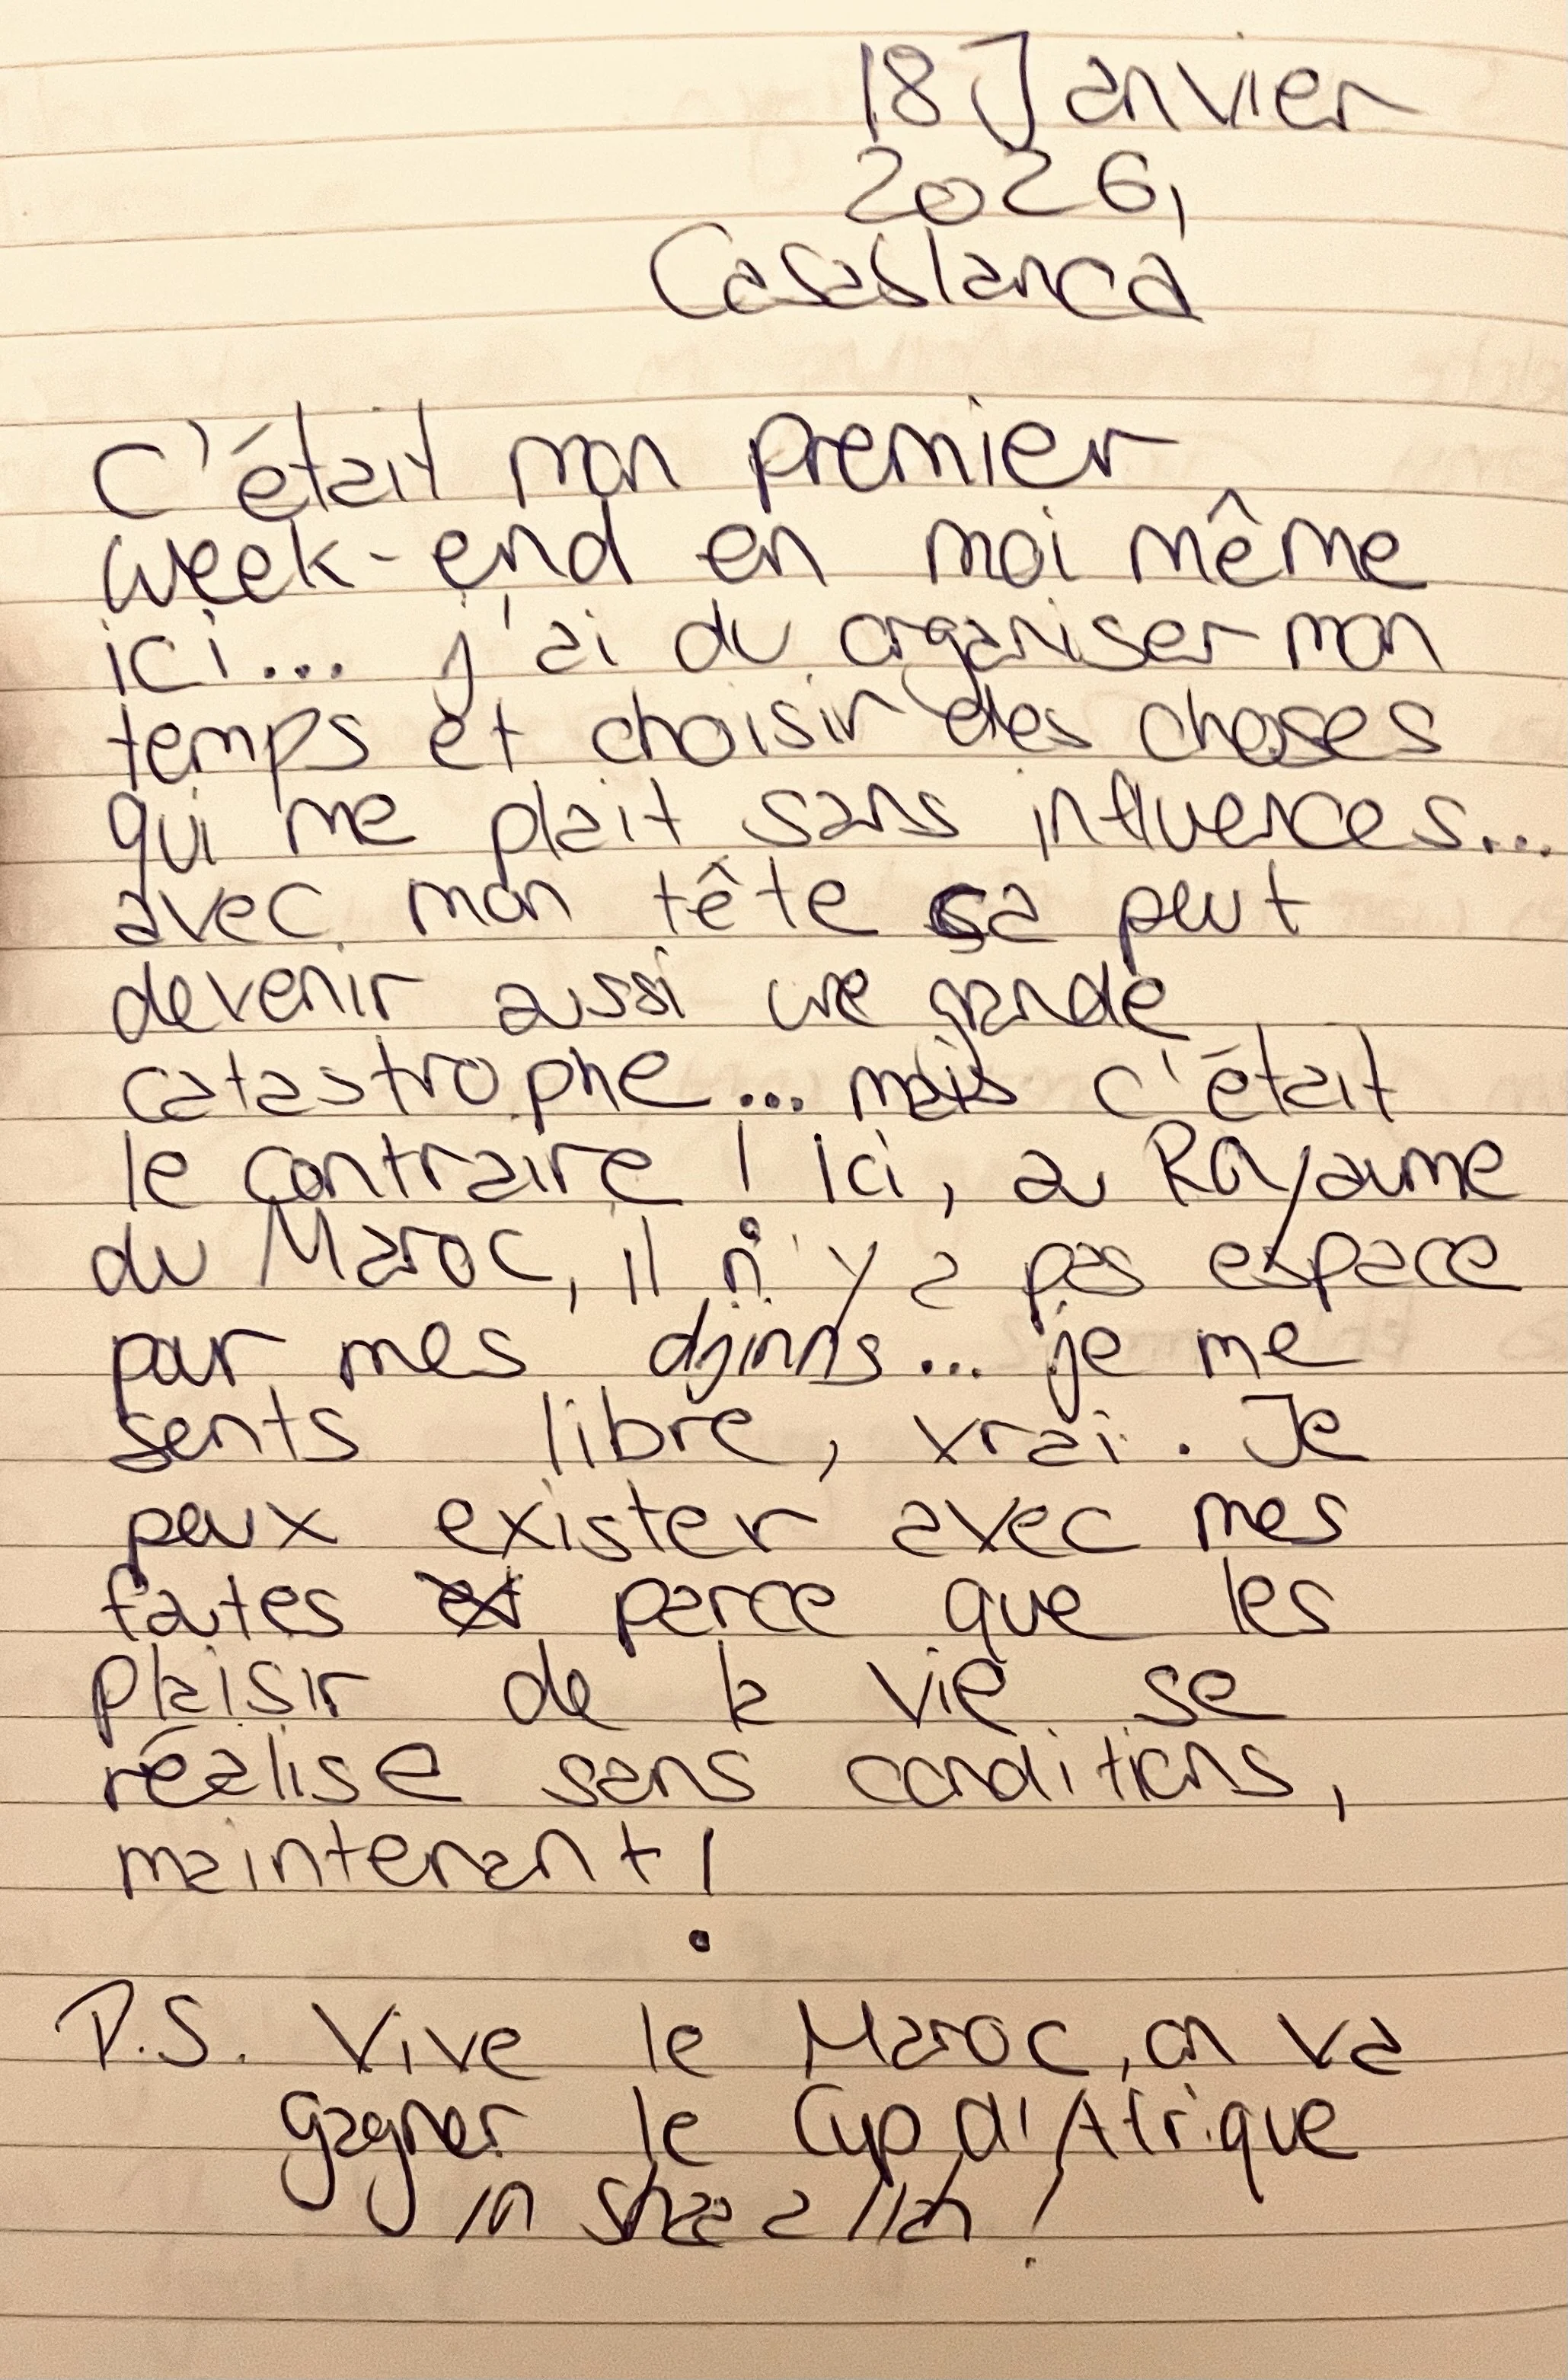 18 Janvier
2026,
Casablanca
C'était mon premier
week-end en moi même
ici... j'ai du organiser mon
temps et choisir des choses
qui me plait sans influences...
avec mon tête ça peut
devenir aussi une grande
catastrophe... mais c'était
le contraire ! Ici, au Royaume
du Maroc, il n'y a pas espace
pour mes djinns... je me
sents libre, vrai. Je
peux exister avec mes
fautes parce que les
plaisir de la vie se
réalise sans conditions,
maintenant !
P.S. Vive le Maroc, on va
gagner le Cup d'Afrique
in shaa allah !